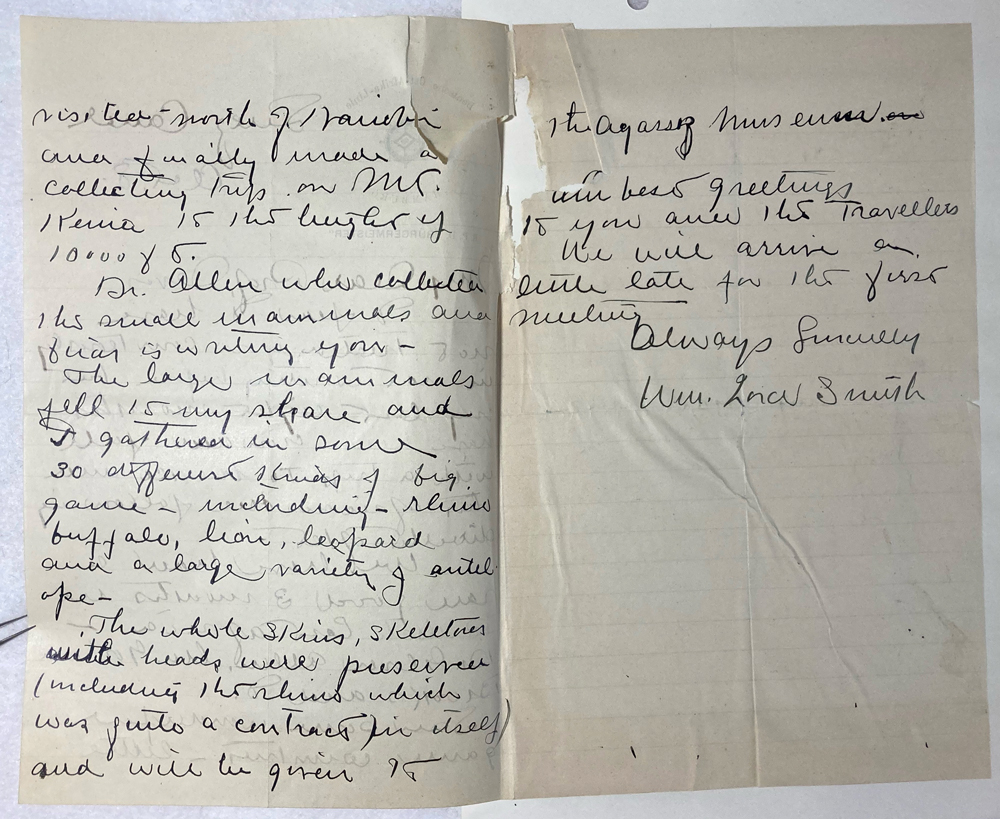 visited north of Nairobi
and finally made a
collecting trip on Mt.
Kenia to the height of
10000 ft.
Dr. Allen who collected
the small mammals and
is writing you -
The large mammals
fell to my share and
I gathered in some
30 different kinds of big
game - including - rhino
buffalo, lion, leopard
and a large variety of antel-
ope -
The whole skins, skeletons
with heads were preserved
(including the rhino which
was quite a contract in itself)
and will be given to
the Agassiz Museum.
with best greetings
to you and the Travellers
We will arrive a
little late for the first
meeting
Always Sincerely
Wm. Lord Smith